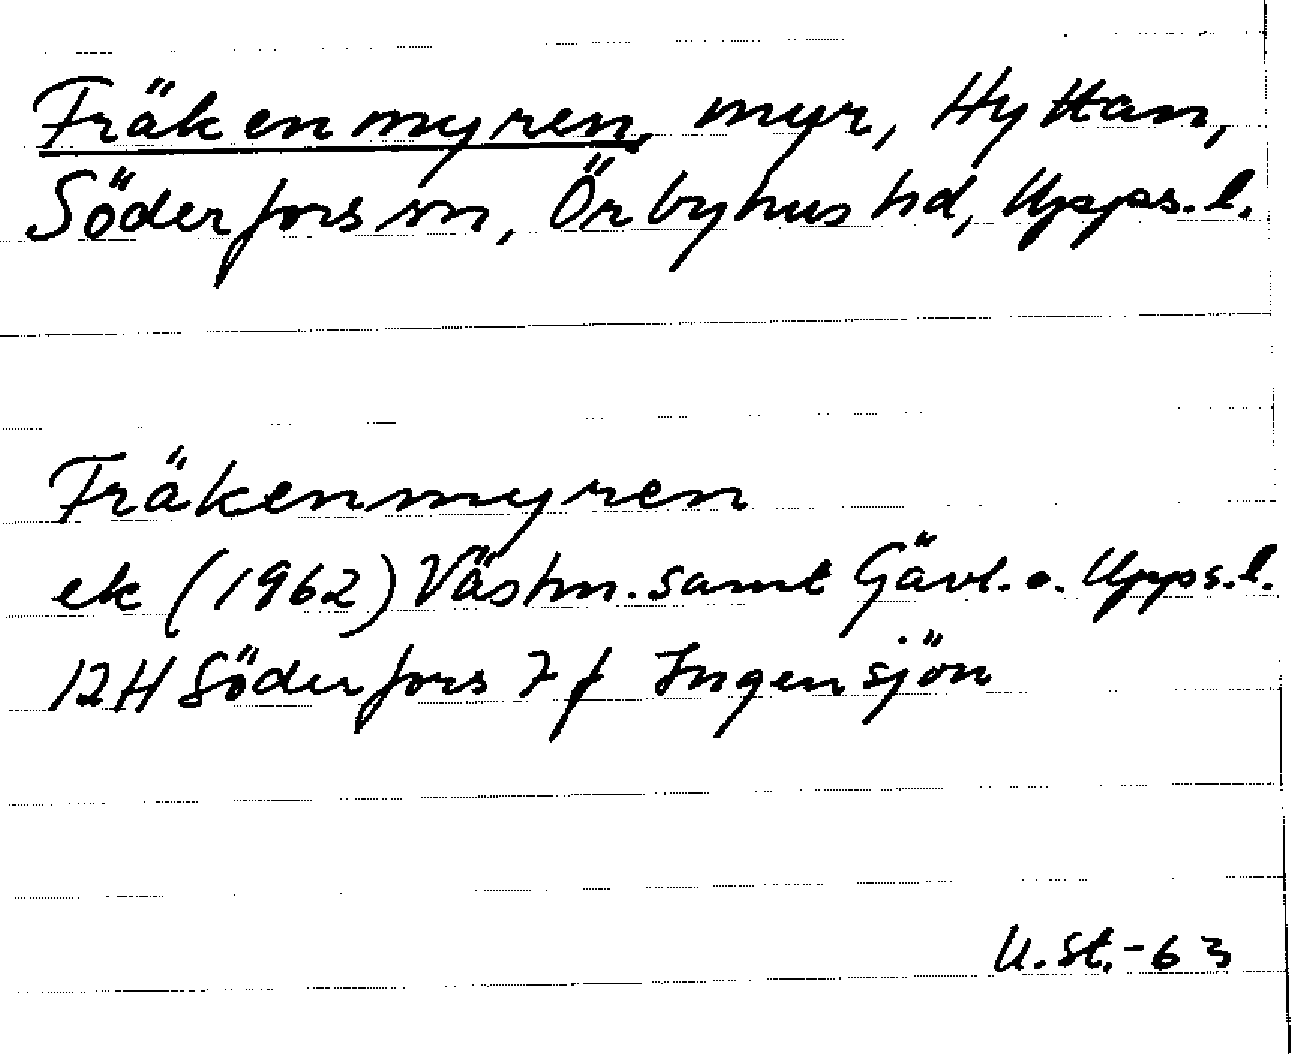 Fräkenmyren, myr, Hyttan,
Söderfors sn, Örbyhus hd, Upps. l.
Fräkenmyren
ek (1962) Västm. samt Gävl. o. Upps. l.
12H Söderfors 7 f Ingensjön
U. St. -63